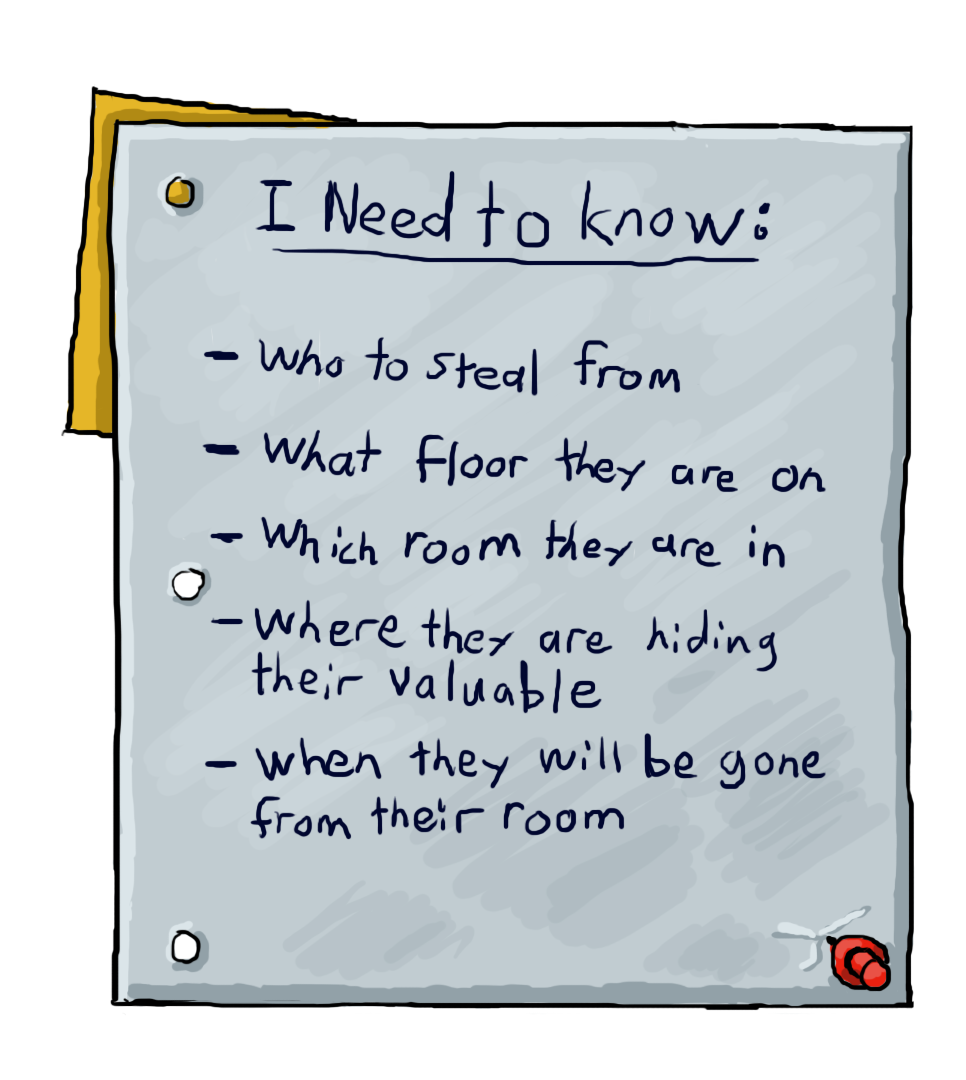 I Need to know:
- Who to steal from
- What floor they are on
- Which room they are in
- Where they are hiding
their valuable
- When they will be gone
from their room